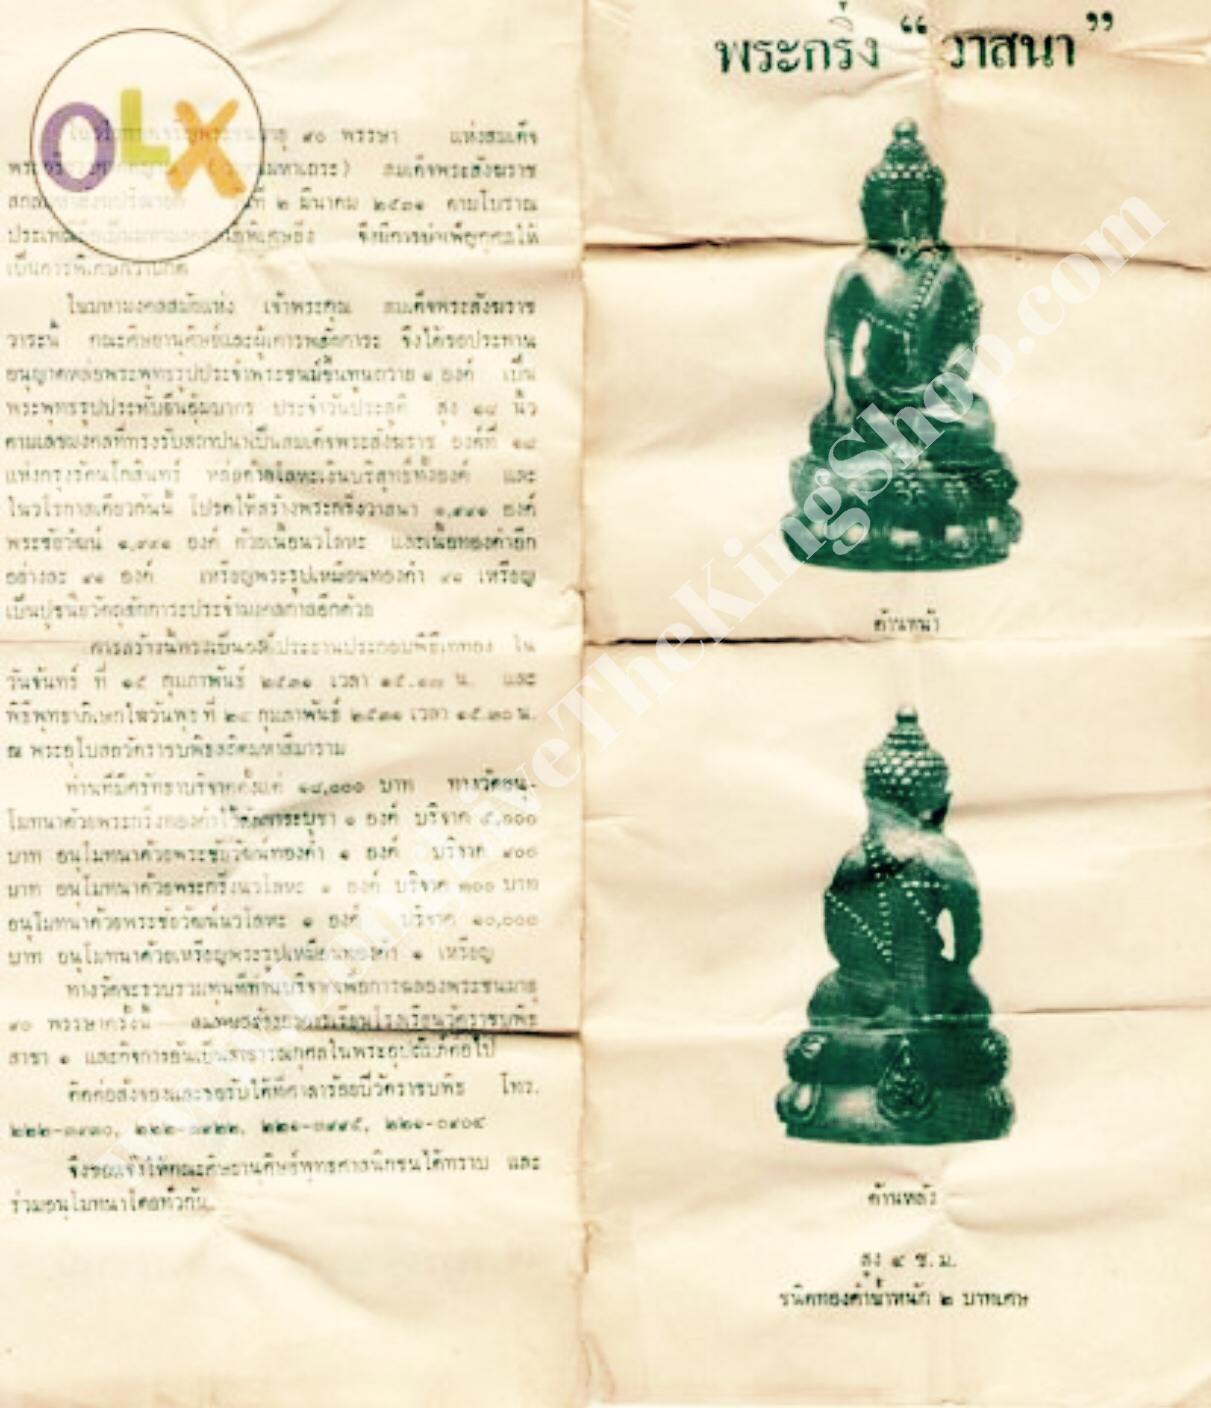 พระกริ่ง “วาสนา”
OLX
๙๐ พรรษา แห่งสมเด็จ
สมเด็จพระสังฆราช
วันที่ ๒ มีนาคม ๒๕๓๑ ตามโบราณ
จึงมีการบำเพ็ญกุศลให้
เป็นการพิเศษกว่าปกติ
ในมหามงคลสมัยแห่ง เจ้าพระคุณ สมเด็จพระสังฆราช
วาระนี้ คณะศิษยานุศิษย์และผู้เคารพสักการะ จึงได้ขอประทาน
อนุญาตหล่อพระพุทธรูปประจำพระชนม์ขึ้นทูนถวาย ๑ องค์ เป็น
พระพุทธรูปประทับยืนอุ้มบาตร ประจำวันประสูติ สูง ๑๘ นิ้ว
ตามเลขมงคลที่ทรงรับสถาปนาเป็นสมเด็จพระสังฆราช องค์ที่ ๑๘
แห่งกรุงรัตนโกสินทร์ หล่อด้วยโลหะเงินบริสุทธิ์ทั้งองค์ และ
ในวโรกาสเดียวกันนี้ โปรดให้สร้างพระกริ่งวาสนา ๑,๙๙๑ องค์
พระชัยวัฒน์ ๑,๙๙๑ องค์ ด้วยเนื้อนวโลหะ และเนื้อทองคำอีก
อย่างละ ๙๑ องค์ เหรียญพระรูปเหมือนทองคำ ๙๑ เหรียญ
เป็นปูชนียวัตถุสักการะประจำมงคลกาลอีกด้วย
การสร้างนี้ทรงเป็นองค์ประธานประกอบพิธีเททอง ใน
วันจันทร์ ที่ ๑๕ กุมภาพันธ์ ๒๕๓๑ เวลา ๑๕.๑๗ น. และ
พิธีพุทธาภิเษกในวันพุธ ที่ ๒๔ กุมภาพันธ์ ๒๕๓๑ เวลา ๑๕.๓๐ น.
ณ พระอุโบสถวัดราชบพิธสถิตมหาสีมาราม
ท่านที่มีศรัทธาบริจาคตั้งแต่ ๑๘,๐๐๐ บาท ทางวัดอนุ-
โมทนาด้วยพระกริ่งทองคำไว้สักการะบูชา ๑ องค์ บริจาค ๕,๐๐๐
บาท อนุโมทนาด้วยพระชัยวัฒน์ทองคำ ๑ องค์ บริจาค ๙๐๐
บาท อนุโมทนาด้วยพระกริ่งนวโลหะ ๑ องค์ บริจาค ๓๐๐ บาท
อนุโมทนาด้วยพระชัยวัฒน์นวโลหะ ๑ องค์ บริจาค ๑๐,๐๐๐
บาท อนุโมทนาด้วยเหรียญพระรูปเหมือนทองคำ ๑ เหรียญ
ทางวัดจะรวบรวมทุนที่ท่านบริจาคเพื่อการฉลองพระชนมายุ
๙๐ พรรษาครั้งนี้ สมทบสร้างอาคารเรียนโรงเรียนวัดราชบพิธ
สาขา ๑ และกิจการอันเป็นสาธารณกุศลในพระอุปถัมภ์ต่อไป
ติดต่อสั่งจองและขอรับได้ที่ศาลาร้อยปีวัดราชบพิธ โทร.
จึงขอแจ้งให้คณะศิษยานุศิษย์พุทธศาสนิกชนได้ทราบ และ
ร่วมอนุโมทนาโดยทั่วกัน.
ด้านหน้า
ด้านหลัง
สูง ๔ ซ.ม.
ชนิดทองคำน้ำหนัก ๒ บาทเศษ
LongLiveTheKingShop.com